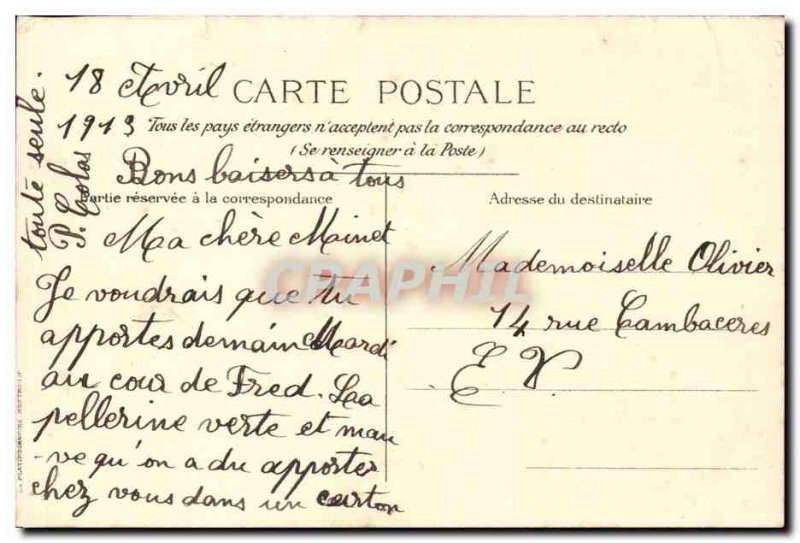 18 Avril
1913
CARTE POSTALE
Tous les pays étrangers n'acceptent pas la correspondance au recto
(Se renseigner à la Poste)
Bons baisers à tous
Partie réservée à la correspondance
Adresse du destinataire
Ma chère Mainet
Je voudrais que tu
apportes demain Mardi
au cour de Fred. La
pellerine verte et mau
-ve qu'on a du apporter
chez vous dans un carton
toute seule.
P. Colas
Mademoiselle Olivier
14 rue Cambacères
E. V.
CPAPHIL